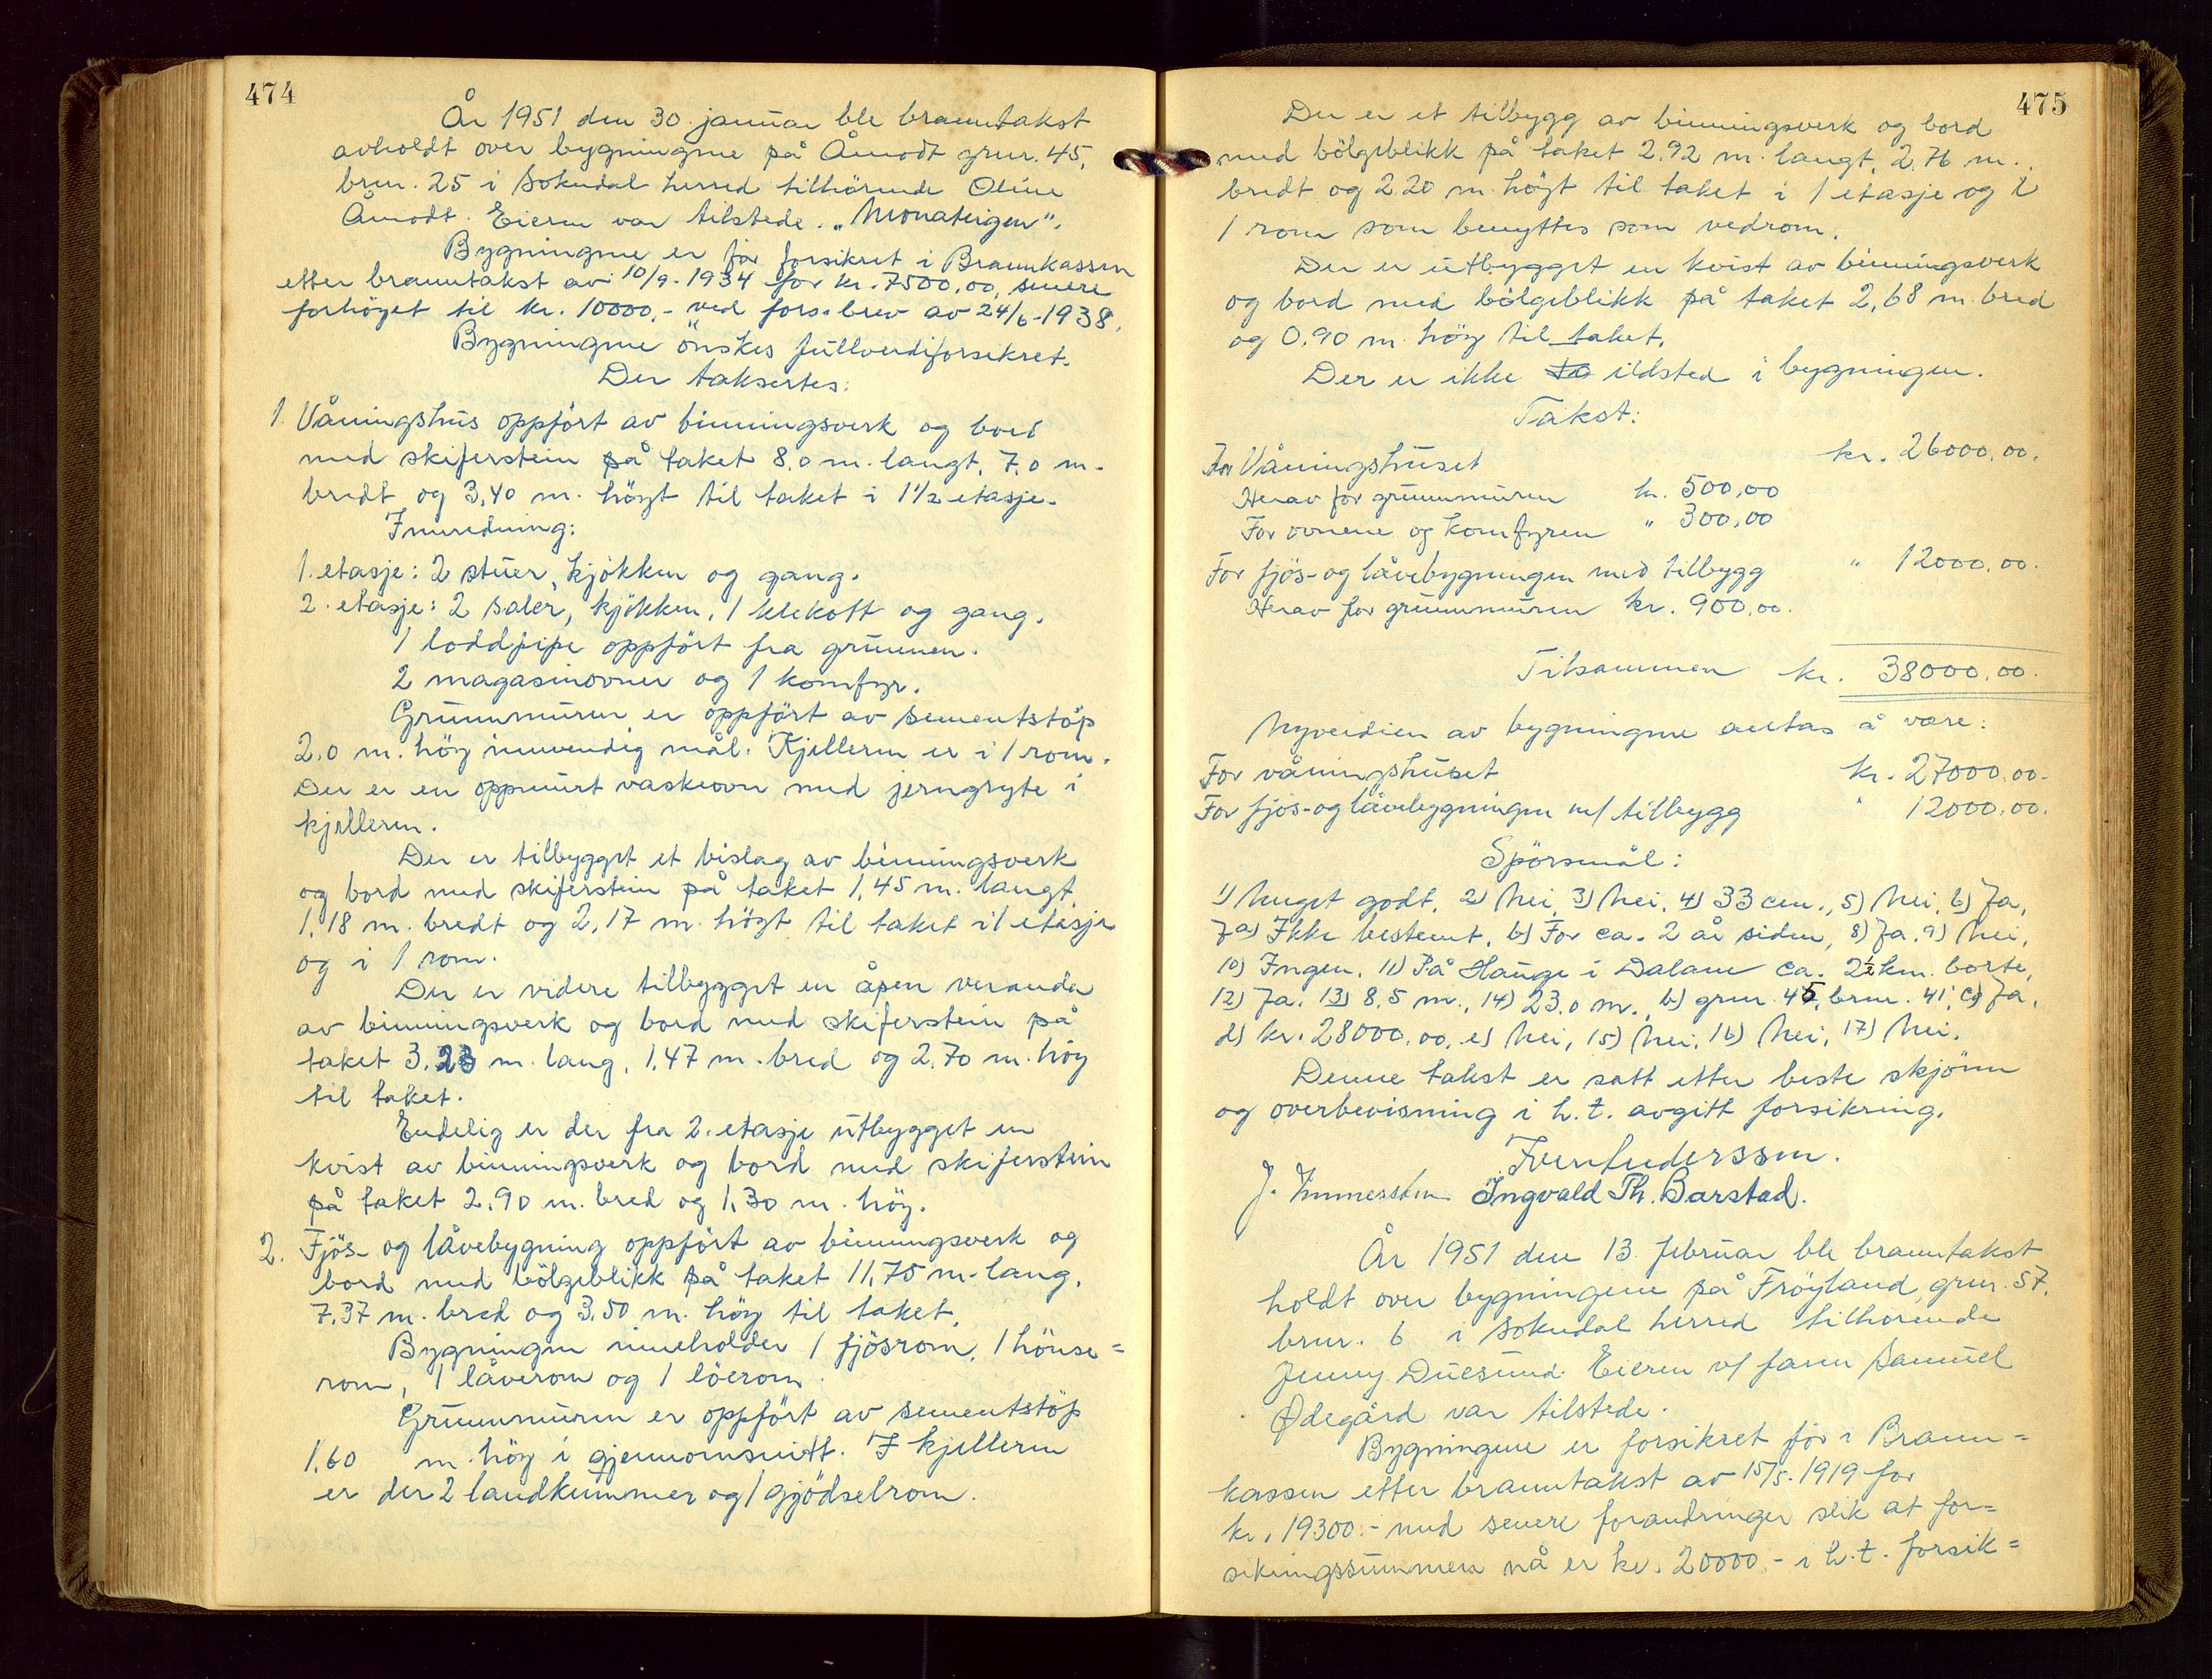 474
År 1951 den 30. januar ble branntakst
avholdt over bygningene på Åmodt grnr. 45,
brnr. 25 i Sokndal herred tilhørende Oline
Åmodt. Eieren var tilstede. "Monateigen".
Bygningene er før forsikret i Brannkassen
etter branntakst av 10/9-1934 for kr. 7500,00, senere
forhöyet til kr. 10000,- ved fors.brev av 24/6-1938.
Bygningene önskes fullverdiforsikret.
Der taksertes:
1. Våningshus oppfört av binningsverk og bord
med skiferstein på taket 8,0 m. langt, 7,0 m.
bredt og 3,40 m. höyt til taket i 1 1/2 etasje.
Innredning:
1. etasje: 2 stuer, kjökken og gang.
2. etasje: 2 saler, kjökken, 1 klekott og gang.
1 loddpipe oppfört fra grunnen.
2 magasinovner og 1 komfyr.
Grunnmuren er oppfört av sementstöp
2,0 m. höy innvendig mål. Kjelleren er i 1 rom.
Der er en oppmurt vaskeovn med jerngryte i
kjelleren.
Der er tilbygget et bislag av binningsverk
og bord med skiferstein på taket 1,45 m. langt,
1,18 m. bredt og 2,17 m. högt til taket i 1 etasje
og i 1 rom.
Der er videre tilbygget en åpen veranda
av binningsverk og bord med skiferstein på
taket 3,23 m. lang, 1,47 m. bred og 2,70 m. höy
til taket.
Endelig er der fra 2. etasje utbygget en
kvist av binningsverk og bord med skiferstein
på taket 2,90 m. bred og 1,30 m. höy.
2. Fjös- og låvebygning oppfört av binningsverk og
bord med bölgeblikk på taket 11,75 m. lang,
7,37 m. bred og 3,50 m. höy til taket.
Bygningen inneholder 1 fjösrom, 1 hönse=
rom, 1 låverom og 1 löerom.
Grunnmuren er oppfört av sementstöp
1,60 m. höy i gjennomsnitt. I kjelleren
er der 2 landkummer og 1 gjödselrom.
475
Der er et tilbygg av binningsverk og bord
med bölgeblikk på taket 2,92 m. langt, 2,76 m.
bredt og 2,20 m. högt til taket i 1 etasje og i
1 rom som benyttes som vedrom.
Der er utbygget en kvist av binningsverk
og bord med bölgeblikk på taket 2,68 m. bred
og 0,90 m. höy til taket.
Der er ikke to ildsted i bygningen.
Takst:
For Våningshuset kr. 26000,00.
Herav for grunnmuren kr. 500,00
For ovnene og komfyren " 300,00
For fjös- og låvebygningen med tilbygg " 12000,00.
Herav for grunnmuren kr. 900,00.
Tilsammen kr. 38000,00.
Nyverdien av bygningene antas å være:
For våningshuset kr. 27000,00.
For fjös- og låvebygningen m/ tilbygg " 12000,00.
Spörsmål:
1) Meget godt, 2) Nei, 3) Nei, 4) 33 cm., 5) Nei, 6) Ja,
7a) Ikke bestemt, b) For ca. 2 år siden, 8) Ja, 9) Nei,
10) Ingen, 11) På Hauge i Dalane ca. 2 1/2 km. borte,
12) Ja, 13) 8,5 m., 14) 23,0 m., b) grnr. 45, brnr. 41, c) Ja,
d) kr. 28000,00, e) Nei, 15) Nei, 16) Nei, 17) Nei.
Denne takst er satt etter beste skjönn
og overbevisning i h.t. avgitt forsikring.
J. Ingvald Th. Barstad.
År 1951 den 13. februar ble branntakst
holdt over bygningene på Fröyland, grnr. 57,
brnr. 6 i Sokndal herred tilhörende
Jenny Duesund. Eieren v/ faren Samuel
Ødegård var tilstede.
Bygningene er forsikret för i Brann=
kassen etter branntakst av 15/5-1919 for
kr. 19300.- med senere forandringer slik at for=
sikringssummen nå er kr. 20000.- i h.t. forsik=